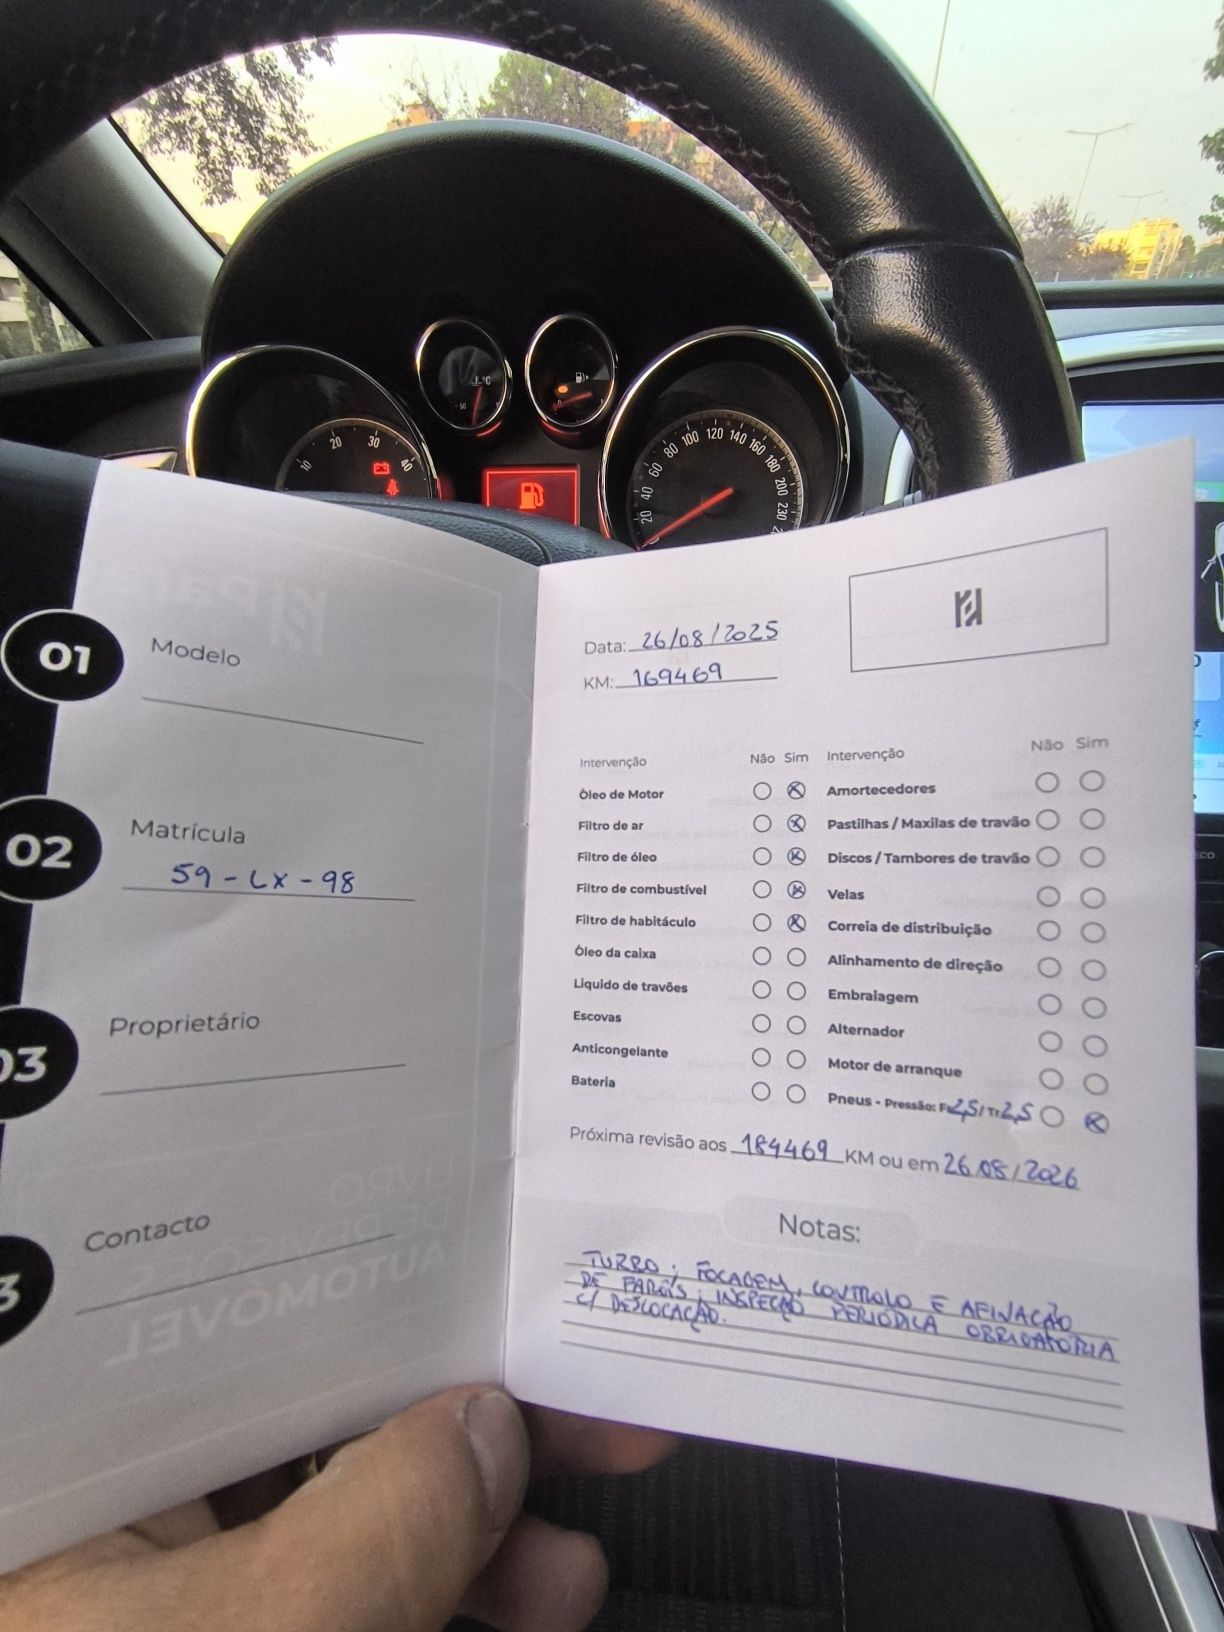 10 20 30 40
-50 °C
20 40 60 80 100 120 140 160 180 200 230
01
Modelo
02
Matrícula
59-LX-98
03
Proprietário
Contacto
Data: 26/08/2025
KM: 169469
Intervenção Não Sim
Óleo de Motor
Filtro de ar
Filtro de óleo
Filtro de combustível
Filtro de habitáculo
Óleo da caixa
Líquido de travões
Escovas
Anticongelante
Bateria
Intervenção Não Sim
Amortecedores
Pastilhas / Maxilas de travão
Discos / Tambores de travão
Velas
Correia de distribuição
Alinhamento de direção
Embraiagem
Alternador
Motor de arranque
Pneus - Pressão: Fr 2,5 / Tr 2,5
Próxima revisão aos 184469 KM ou em 26/08/2026
Notas:
TURBO; FOCAGEM, CONTROLO E AFINAÇÃO
DE FARÓIS; INSPEÇÃO PERIÓDICA OBRIGATORIA
C/ DESLOCAÇÃO.